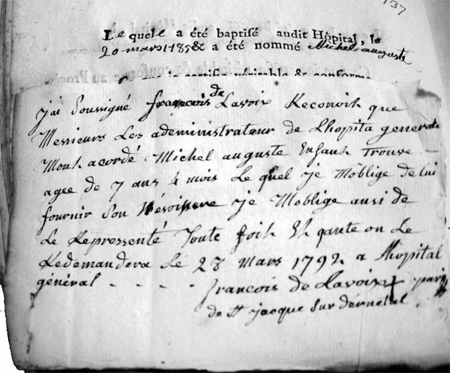 137
Lequel e a été baptisé audit Hôpital, le
20 mars 1785 & a été nommé Michel auguste
certifie véritable & conforme
jai Soussigné françois de Lavoix Reconnoit que
Messieurs Les administrateur de Lhopital generale
Mont acordé Michel auguste Enfant Trouve
agee de 7 ans 4 mois Le quel je Moblige de lui
fournir Son Nesoissere je Moblige ausi de
Le Representé Toute foit Et qante on Le
Redemandera Le 28 Mars 1792 a lhopital
général - - - - françois de Lavoix
de St jacque sur dernetal